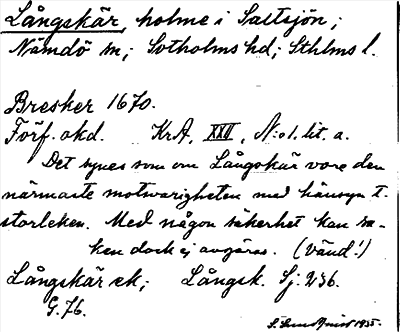 Långskär, holme i Saltsjön;
Nämdö sn; Sotholms hd; Sthlms l.
Bresker 1670.
Förf. okd. KrA, XXII, N:o 1. lit. a.
Det synes som om Långskär vore den
närmaste motsvarigheten med hänsyn t.
storleken. Med någon säkerhet kan sa-
ken dock ej avgöras. (Vänd!)
Långskär ek; Långsk. Sj. 236.
G. 76.
1935.